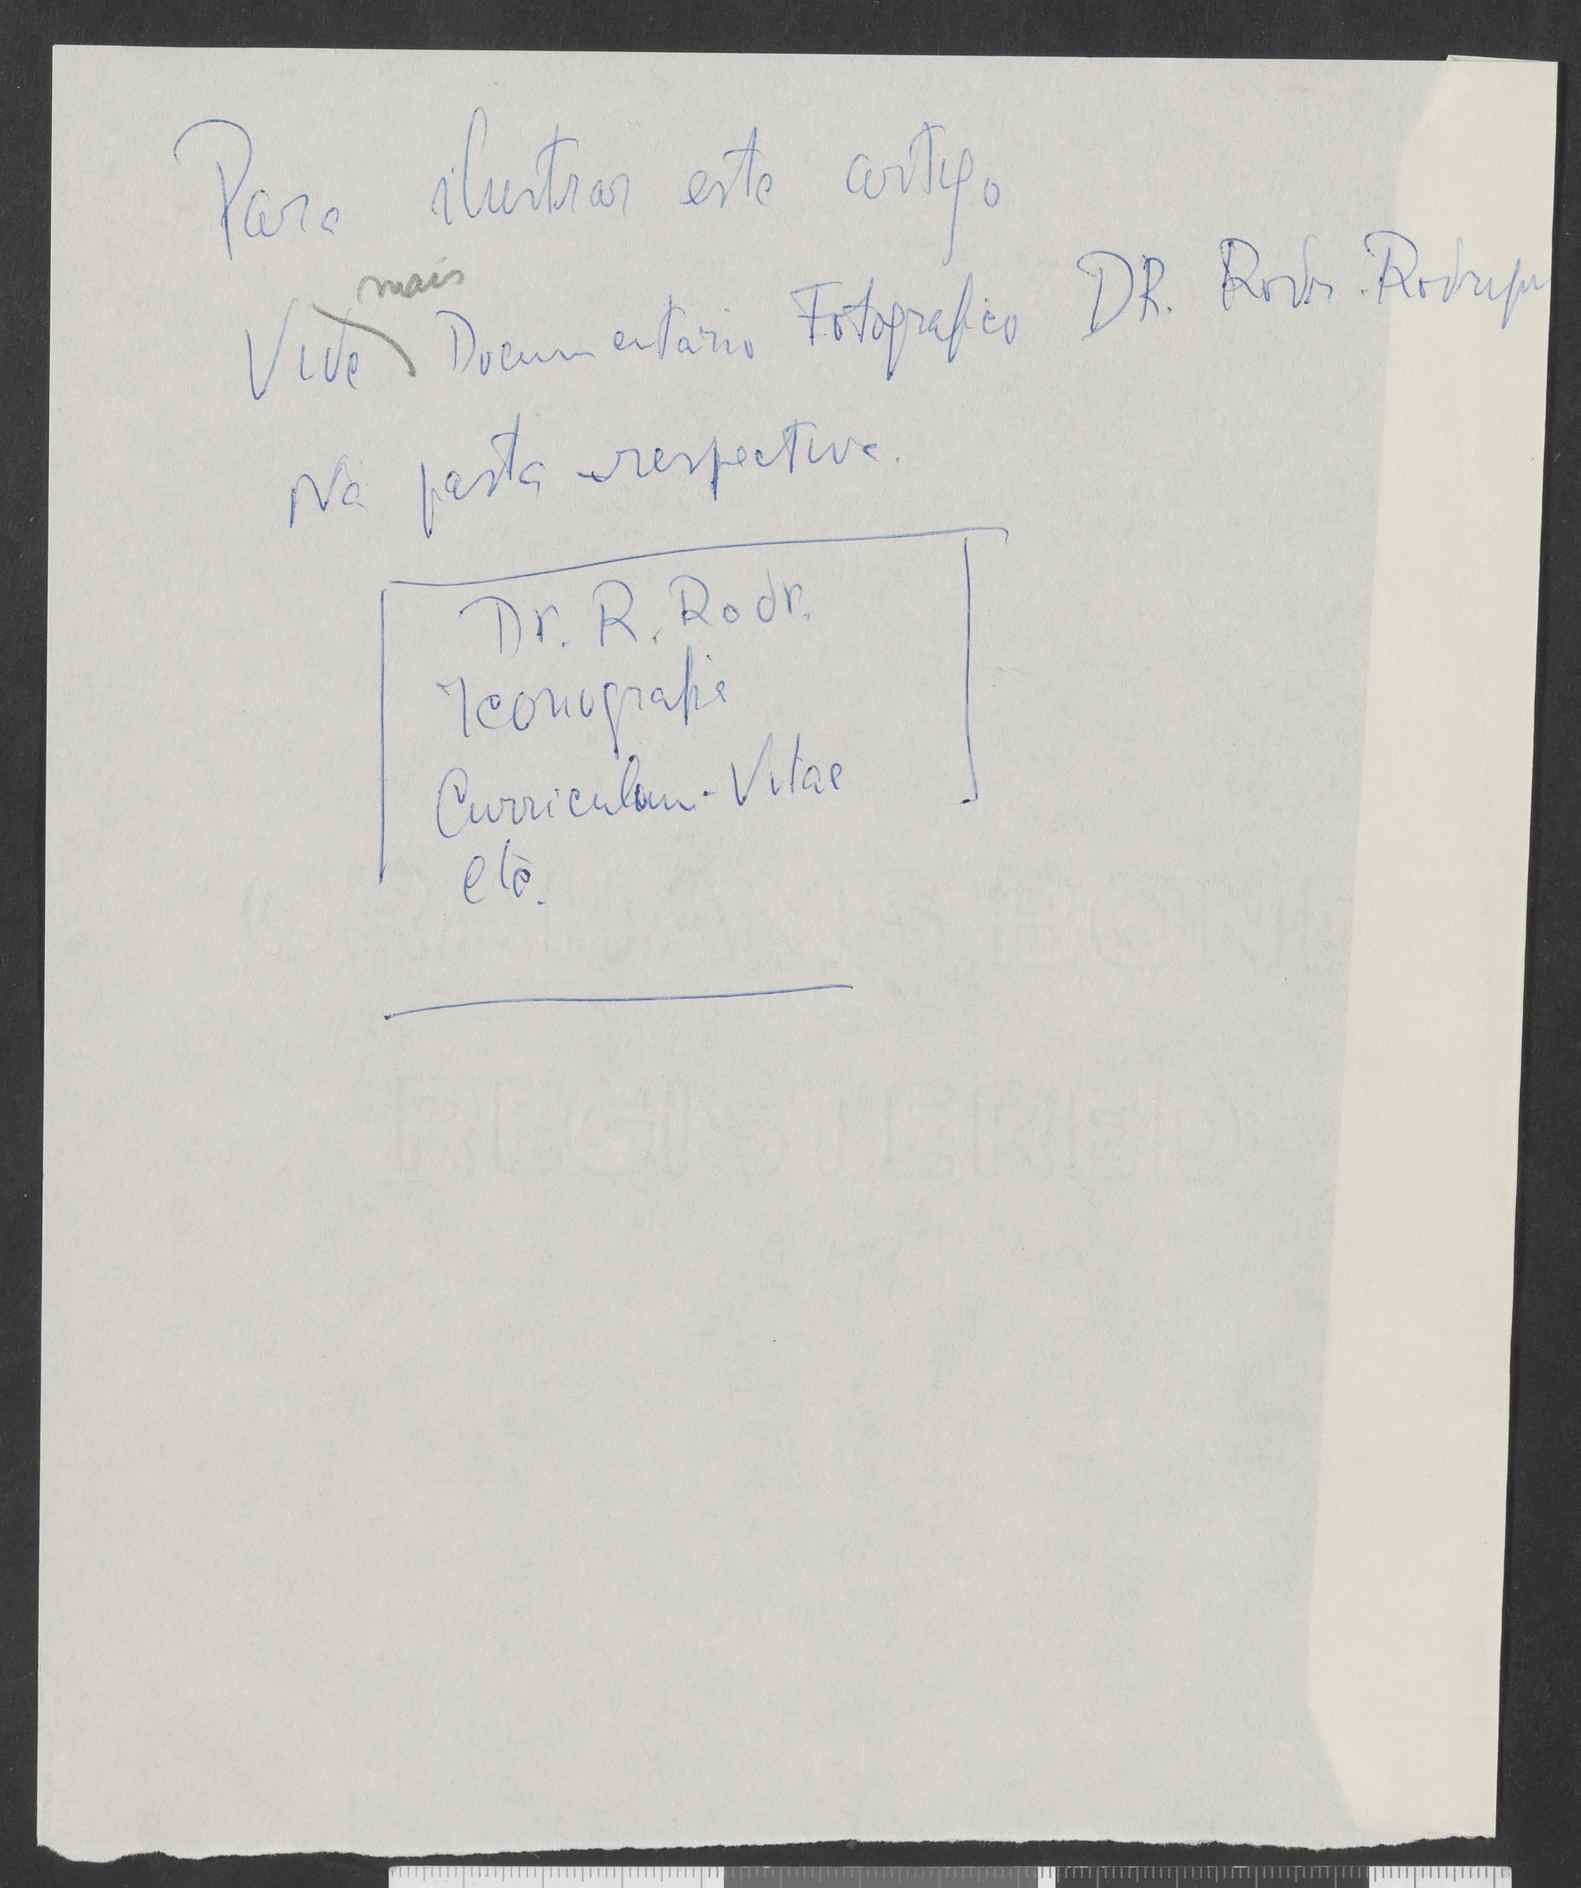 Para ilustrar este artigo
mais
Vide Documentario Fotografico DR. Rodr. Rodrigu
Na pasta respectiva.
Dr. R. Rodr.
Iconografia
Curriculum-Vitae
etc.